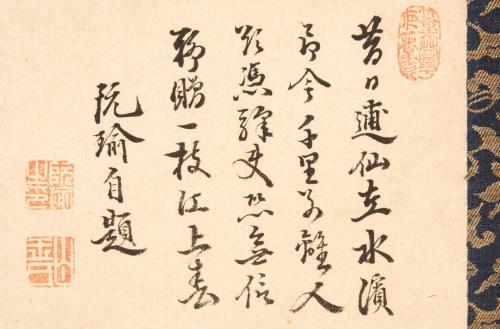 昔日逋仙在水濱
今千里別離人
欲憑驛使恐無信
聊贈一枝江上春
阮瑜自題